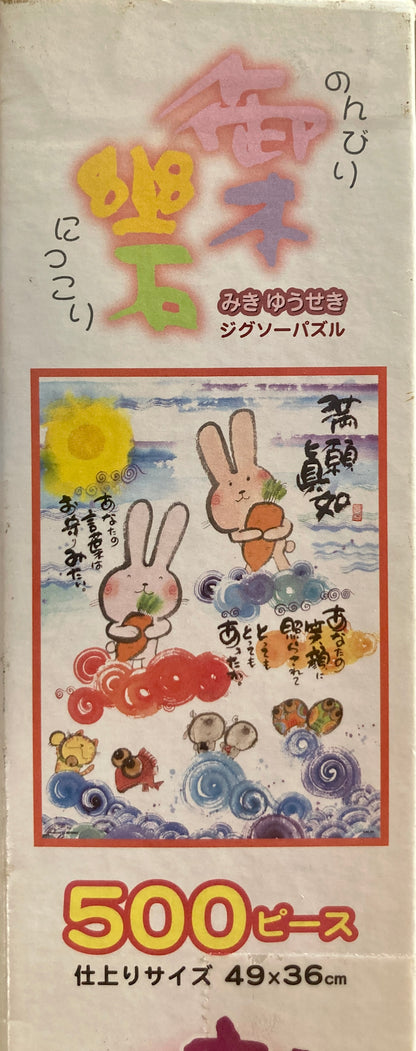 のんびり
御木
幽石
にっこり
みき ゆうせき
ジグソーパズル
満願
真如
あなたの
言葉は
お守りみたい。
あなたの
笑顔に
照らされて
とっても
とっても
あったか。
500ピース
仕上りサイズ 49×36cm